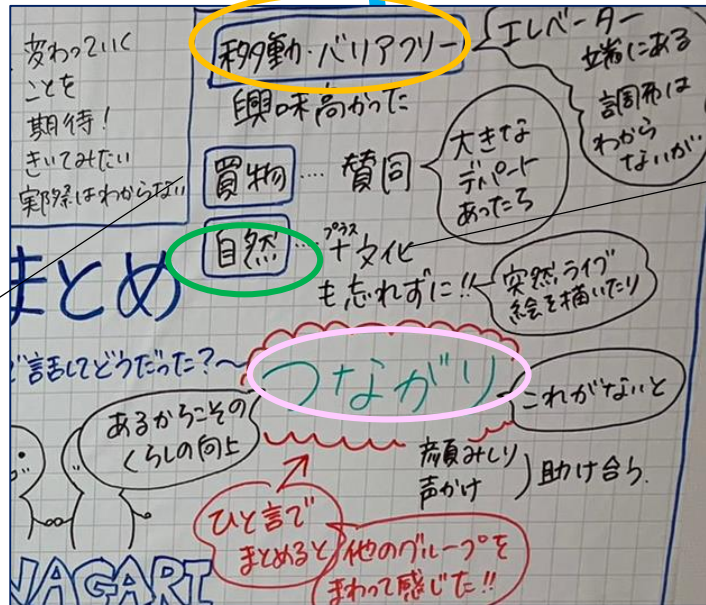 変わっていく
ことを
期待!
きいてみたい
実際はわからない
移動・バリアフリー
エレベーター
端にある
調布は
わから
ないが
興味高かった
買物 … 賛同
大きな
デパート
あったら
自然 … +文化
プラス
も忘れずに!!
突然ライブ
絵を描いたり
まとめ
で話してどうだった?~
つながり
これがないと
あるからこその
くらしの向上
顔みしり
声かけ
助け合い
ひと言で
まとめると
他のグループを
まわって感じた!!
NAGARI